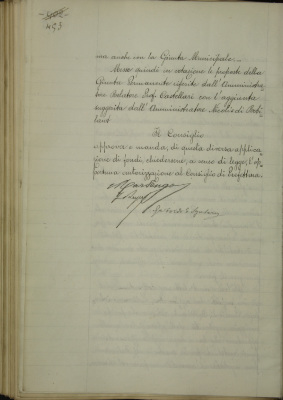 493
ma anche con la Giunta Municipale.
Messe quindi in votazione le proposte della
Giunta Permanente riferite dall'Amministra
tore Relatore Prof. Castellari con l'aggiunta
suggerita dall'Amministratore Nicolis di Robi
lant
Il Consiglio
approva e manda, di questa diversa applica
zione di fondi, chiedersene, a senso di legge, l'op
portuna autorizzazione al Consiglio di Prefettura.